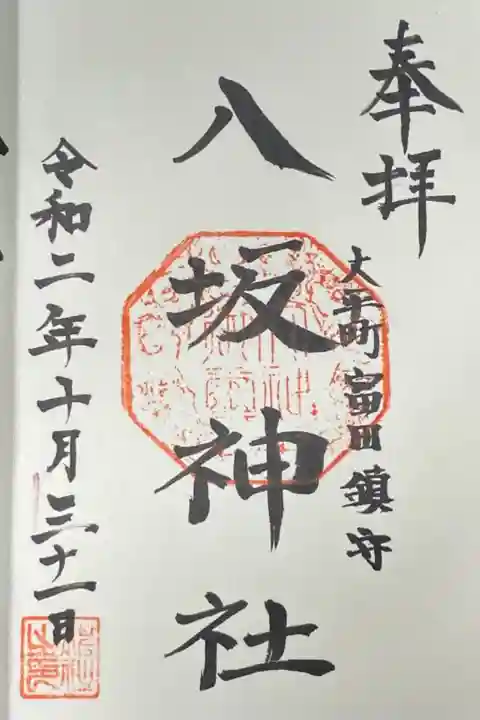 奉拝
大平町富田鎮守
八坂神社
令和二年十月三十一日